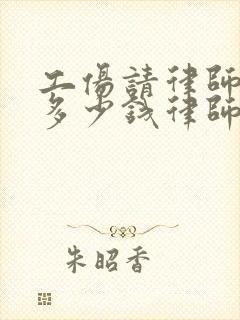 工傷請律師
多少錢律師
朱昭香